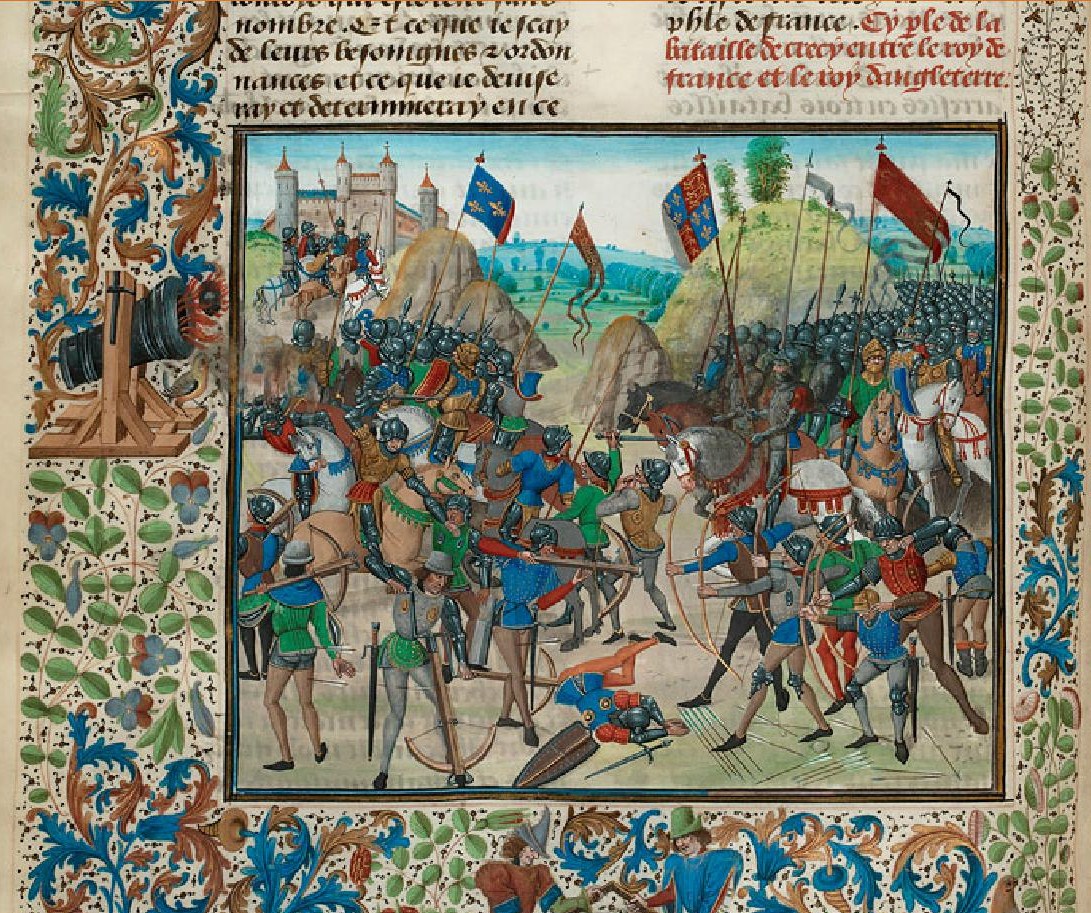 nombre. Et ce que ie scay
de leurs besoingnes ⁊ ordon
nances et ce que ie deuise
ray et determineray en ce
de france. Cy ple de la
bataille de crecy entre le roy de
france et le roy dangleterre.